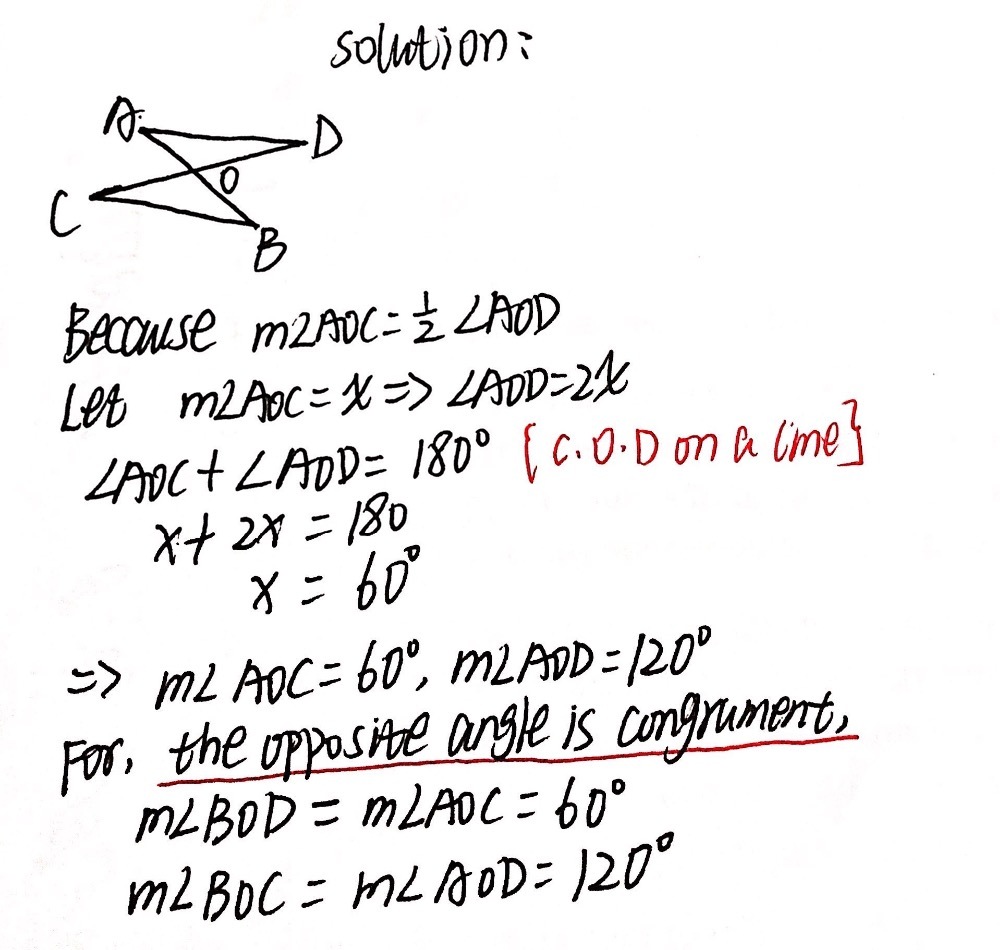 solution:
A
D
O
C
B
Because m∠AOC = 1/2 ∠AOD
Let m∠AOC = x => ∠AOD = 2x
∠AOC + ∠AOD = 180° [C.O.D on a line]
x + 2x = 180
x = 60°
=> m∠AOC = 60°, m∠AOD = 120°
For, the opposite angle is congrument,
m∠BOD = m∠AOC = 60°
m∠BOC = m∠AOD = 120°